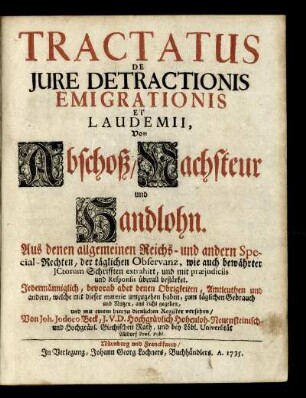 TRACTATUS
DE
JURE DETRACTIONIS
EMIGRATIONIS
ET
LAUDEMII,
Von
Abschoß/ Nachsteur
und
Handlohn.
Aus denen allgemeinen Reichs- und andern Spe-
cial-Rechten, der täglichen Observanz, wie auch bewährter
JCtorum Schrifften extrahirt, und mit præjudiciis
und Responsis überall bestärcket.
Jedermänniglich, bevorab aber denen Obrigkeiten, Amtleuthen und
andern, welche mit dieser materie umzugehen haben, zum täglichen Gebrauch
und Nutzen, ans Licht gegeben,
und mit einem hierzu dienlichen Register versehen/
Von Joh. Jodoco Beck, J.V.D. Hochgräflich Hohenloh-Neuensteinisch-
und Hochgräfl. Giechischen Rath, und bey Löbl. Universität
Altdorf Prof. Publ.
Nürnberg und Franckfurt/
In Verlegung, Johann Georg Lochners, Buchhändlers. A. 1735.